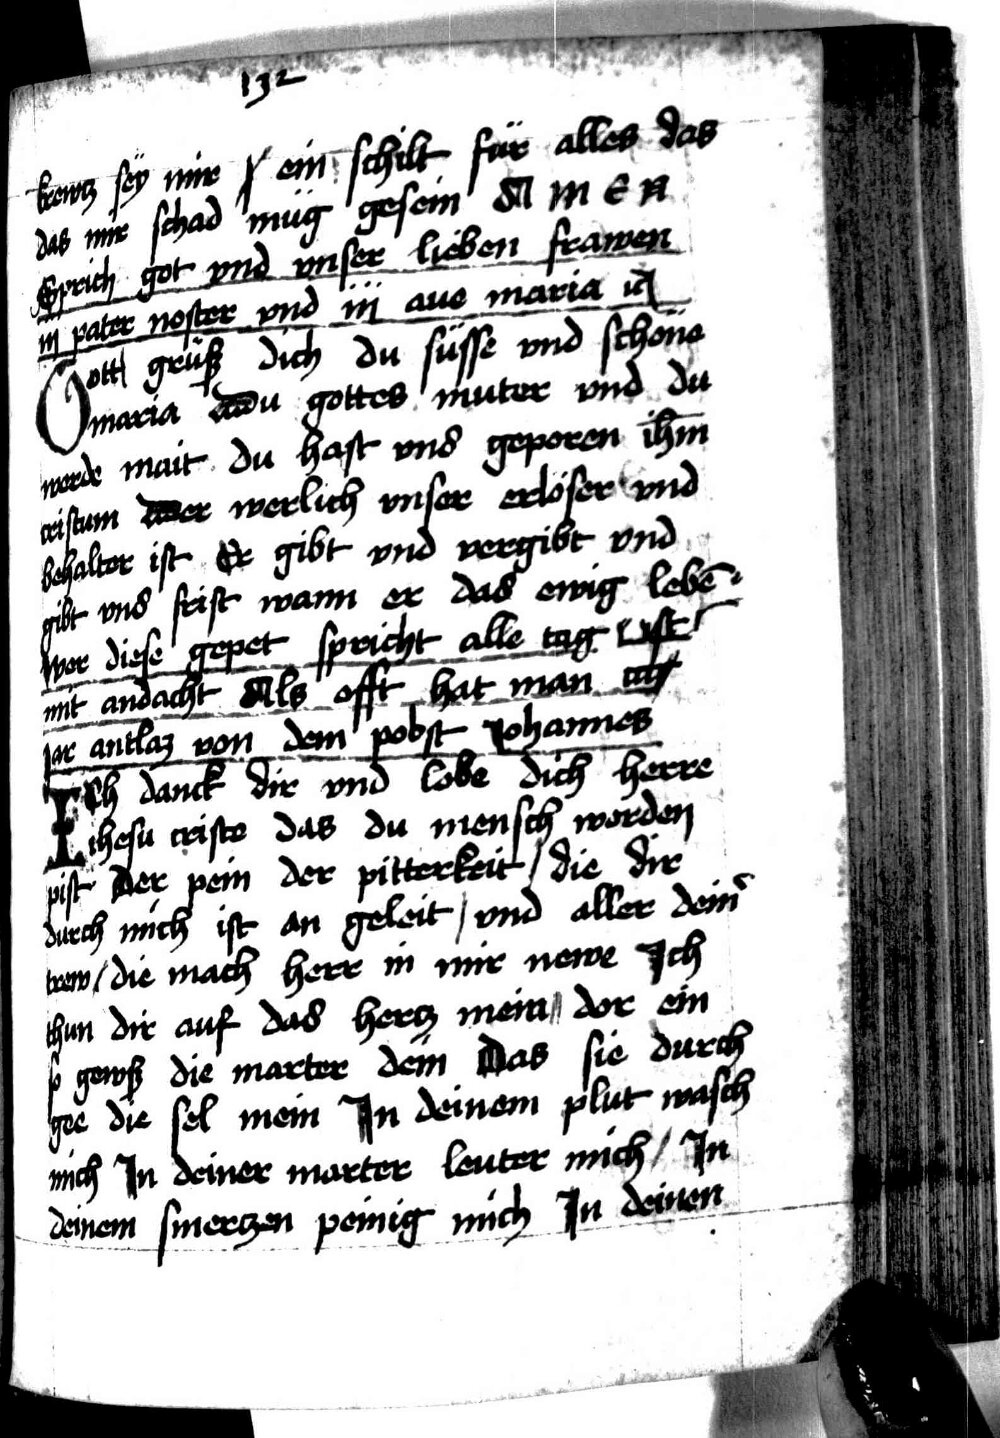 132
krewtz sey mir / ein schilt für alles das
das mir schad müg gesein A M E N
Sprich got vnd vnser lieben frawen
iij pater noster vnd iij aue maria
Gott grüß dich du süsse vnd schöne
maria du gottes muter vnd du
werde mait du hast vns geporen ihm
cristum der werlich vnser erlöser vnd
behalter ist Er gibt vnd vergibt vnd
gibt vns frist wann er das ewig lebē
Wer diese gepet spricht alle tag
mit andacht Als offt hat man
jar antlaz von dem pobst Johannes
Ich danck dir vnd lobe dich herre
ihesu criste das du mensch worden
pist Der pein der pitterkeit / die dir
durch mich ist an geleit / vnd aller dein
trew / die mach herr in mir newe Ich
thun dir auf das hertz mein dor ein
so gewß die marter dein Das sie durch
gee die sel mein In deinem plut wasch
mich In deiner marter leuter mich / In
deinem smertzen peinig mich In deinen